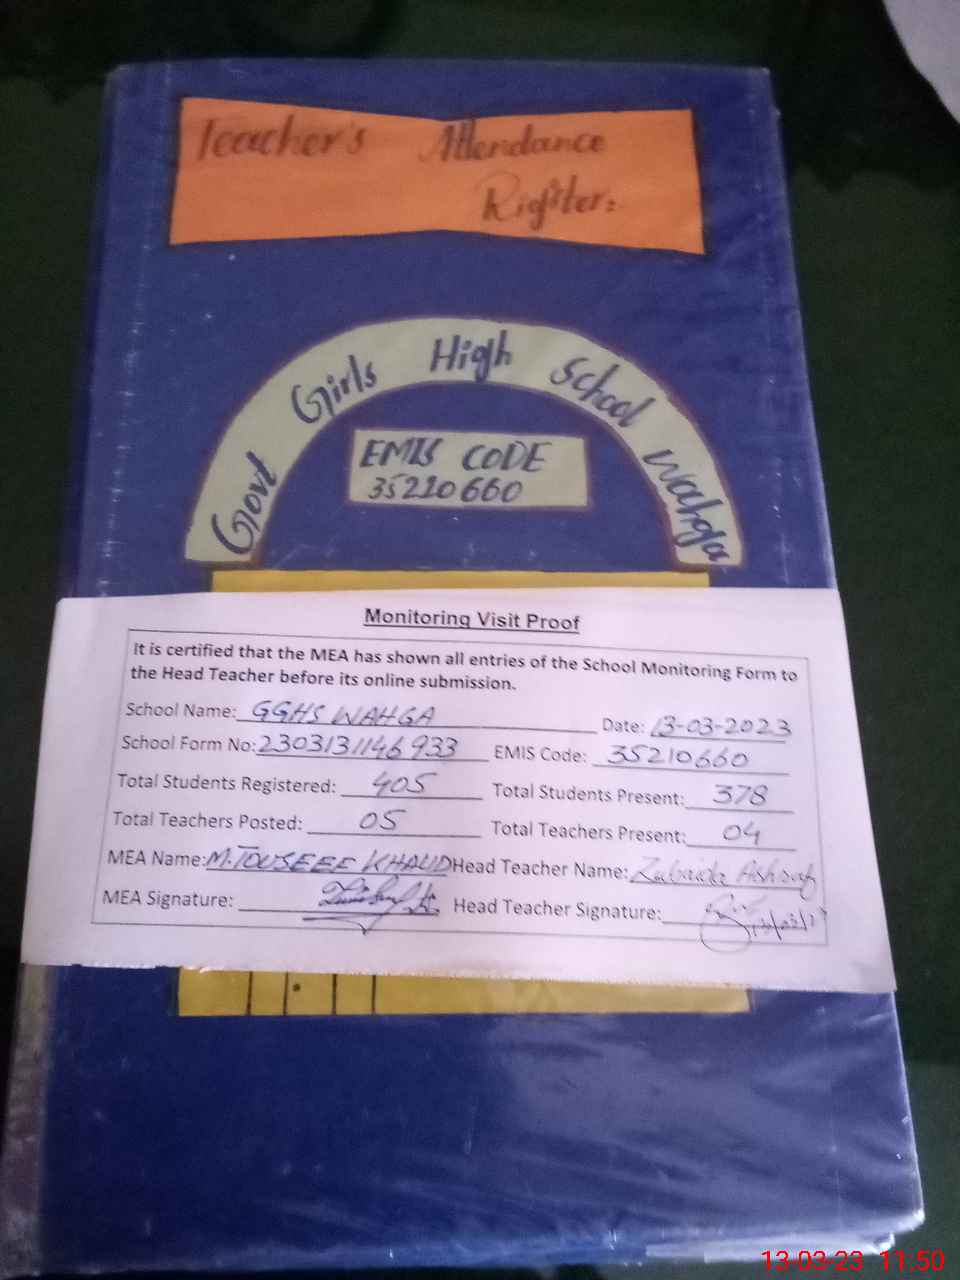 Teacher's Attendance
Rigister:
Govt Girls High School Wahga
EMIS CODE
35210660
Monitoring Visit Proof
It is certified that the MEA has shown all entries of the School Monitoring Form to
the Head Teacher before its online submission.
School Name: GGHS WAHGA Date: 13-03-2023
School Form No: 2303131146933 EMIS Code: 35210660
Total Students Registered: 405 Total Students Present: 378
Total Teachers Posted: 05 Total Teachers Present: 04
MEA Name: M. TOUSEEF KHALID Head Teacher Name: Zubaida Ashraf
MEA Signature: Head Teacher Signature:
13-03-23 11.50